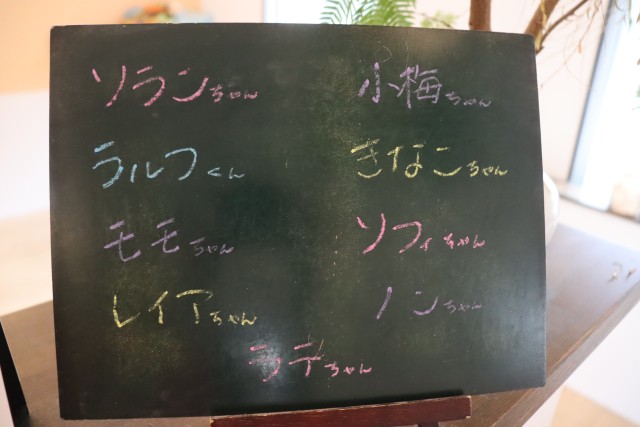 ソランちゃん
小梅ちゃん
ラルフくん
きなこちゃん
モモちゃん
ソフィちゃん
レイアちゃん
ノンちゃん
ラテちゃん